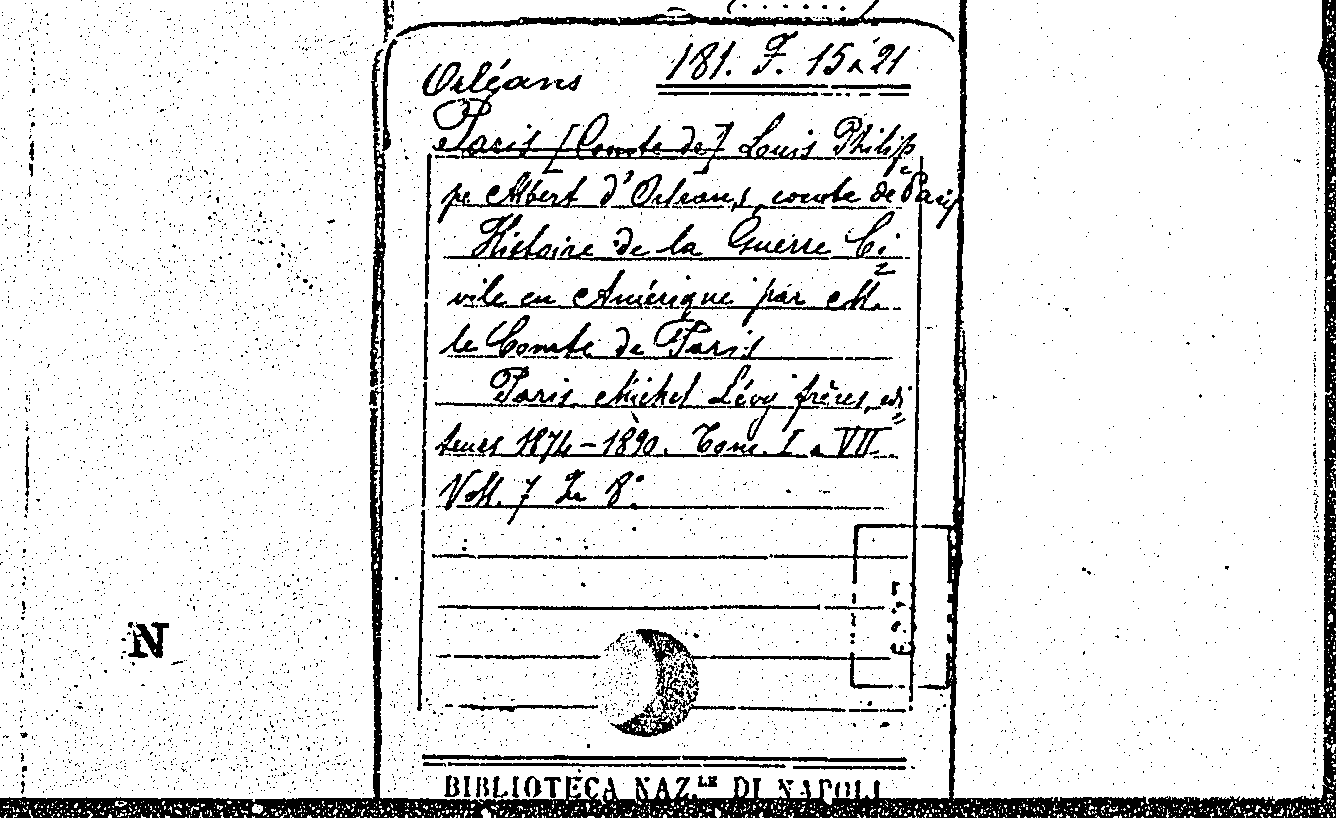 Orléans
181. F. 15 à 21
Paris [Comte de] Louis Philip=
pe Albert d'Orléans, comte de Paris
Histoire de la Guerre Ci=
vile en Amérique par M.
le Comte de Paris
Paris Michel Lévy frères, edi=
teurs 1874-1890. Tom. I à VII
Voll. 7 In 8°
N
BIBLIOTECA NAZ.LE DI NAPOLI